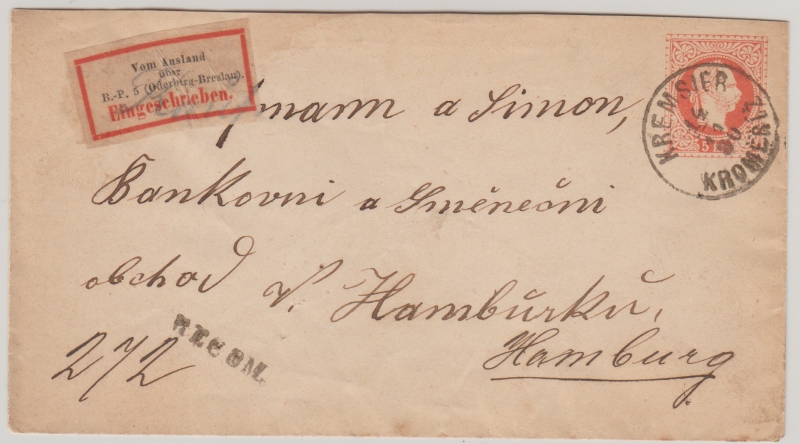 Vom Ausland
über
B.-P. 5 (Oderberg-Breslau).
Eingeschrieben.
mann a Simon,
Bankovni a Směnečni
obchod v Hamburku,
Hamburg
272
RECOM.
KREMSIER
KROMĚŘÍŽ
5